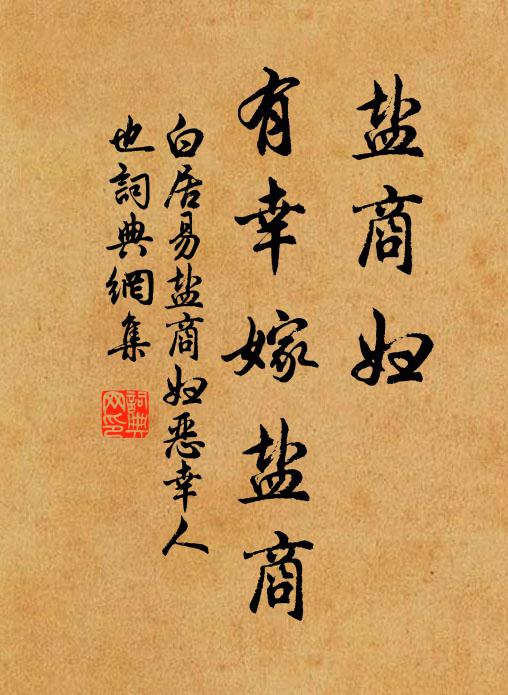 盐商妇
有幸嫁盐商
白居易盐商妇恶幸人
也词典網集
詞典網印